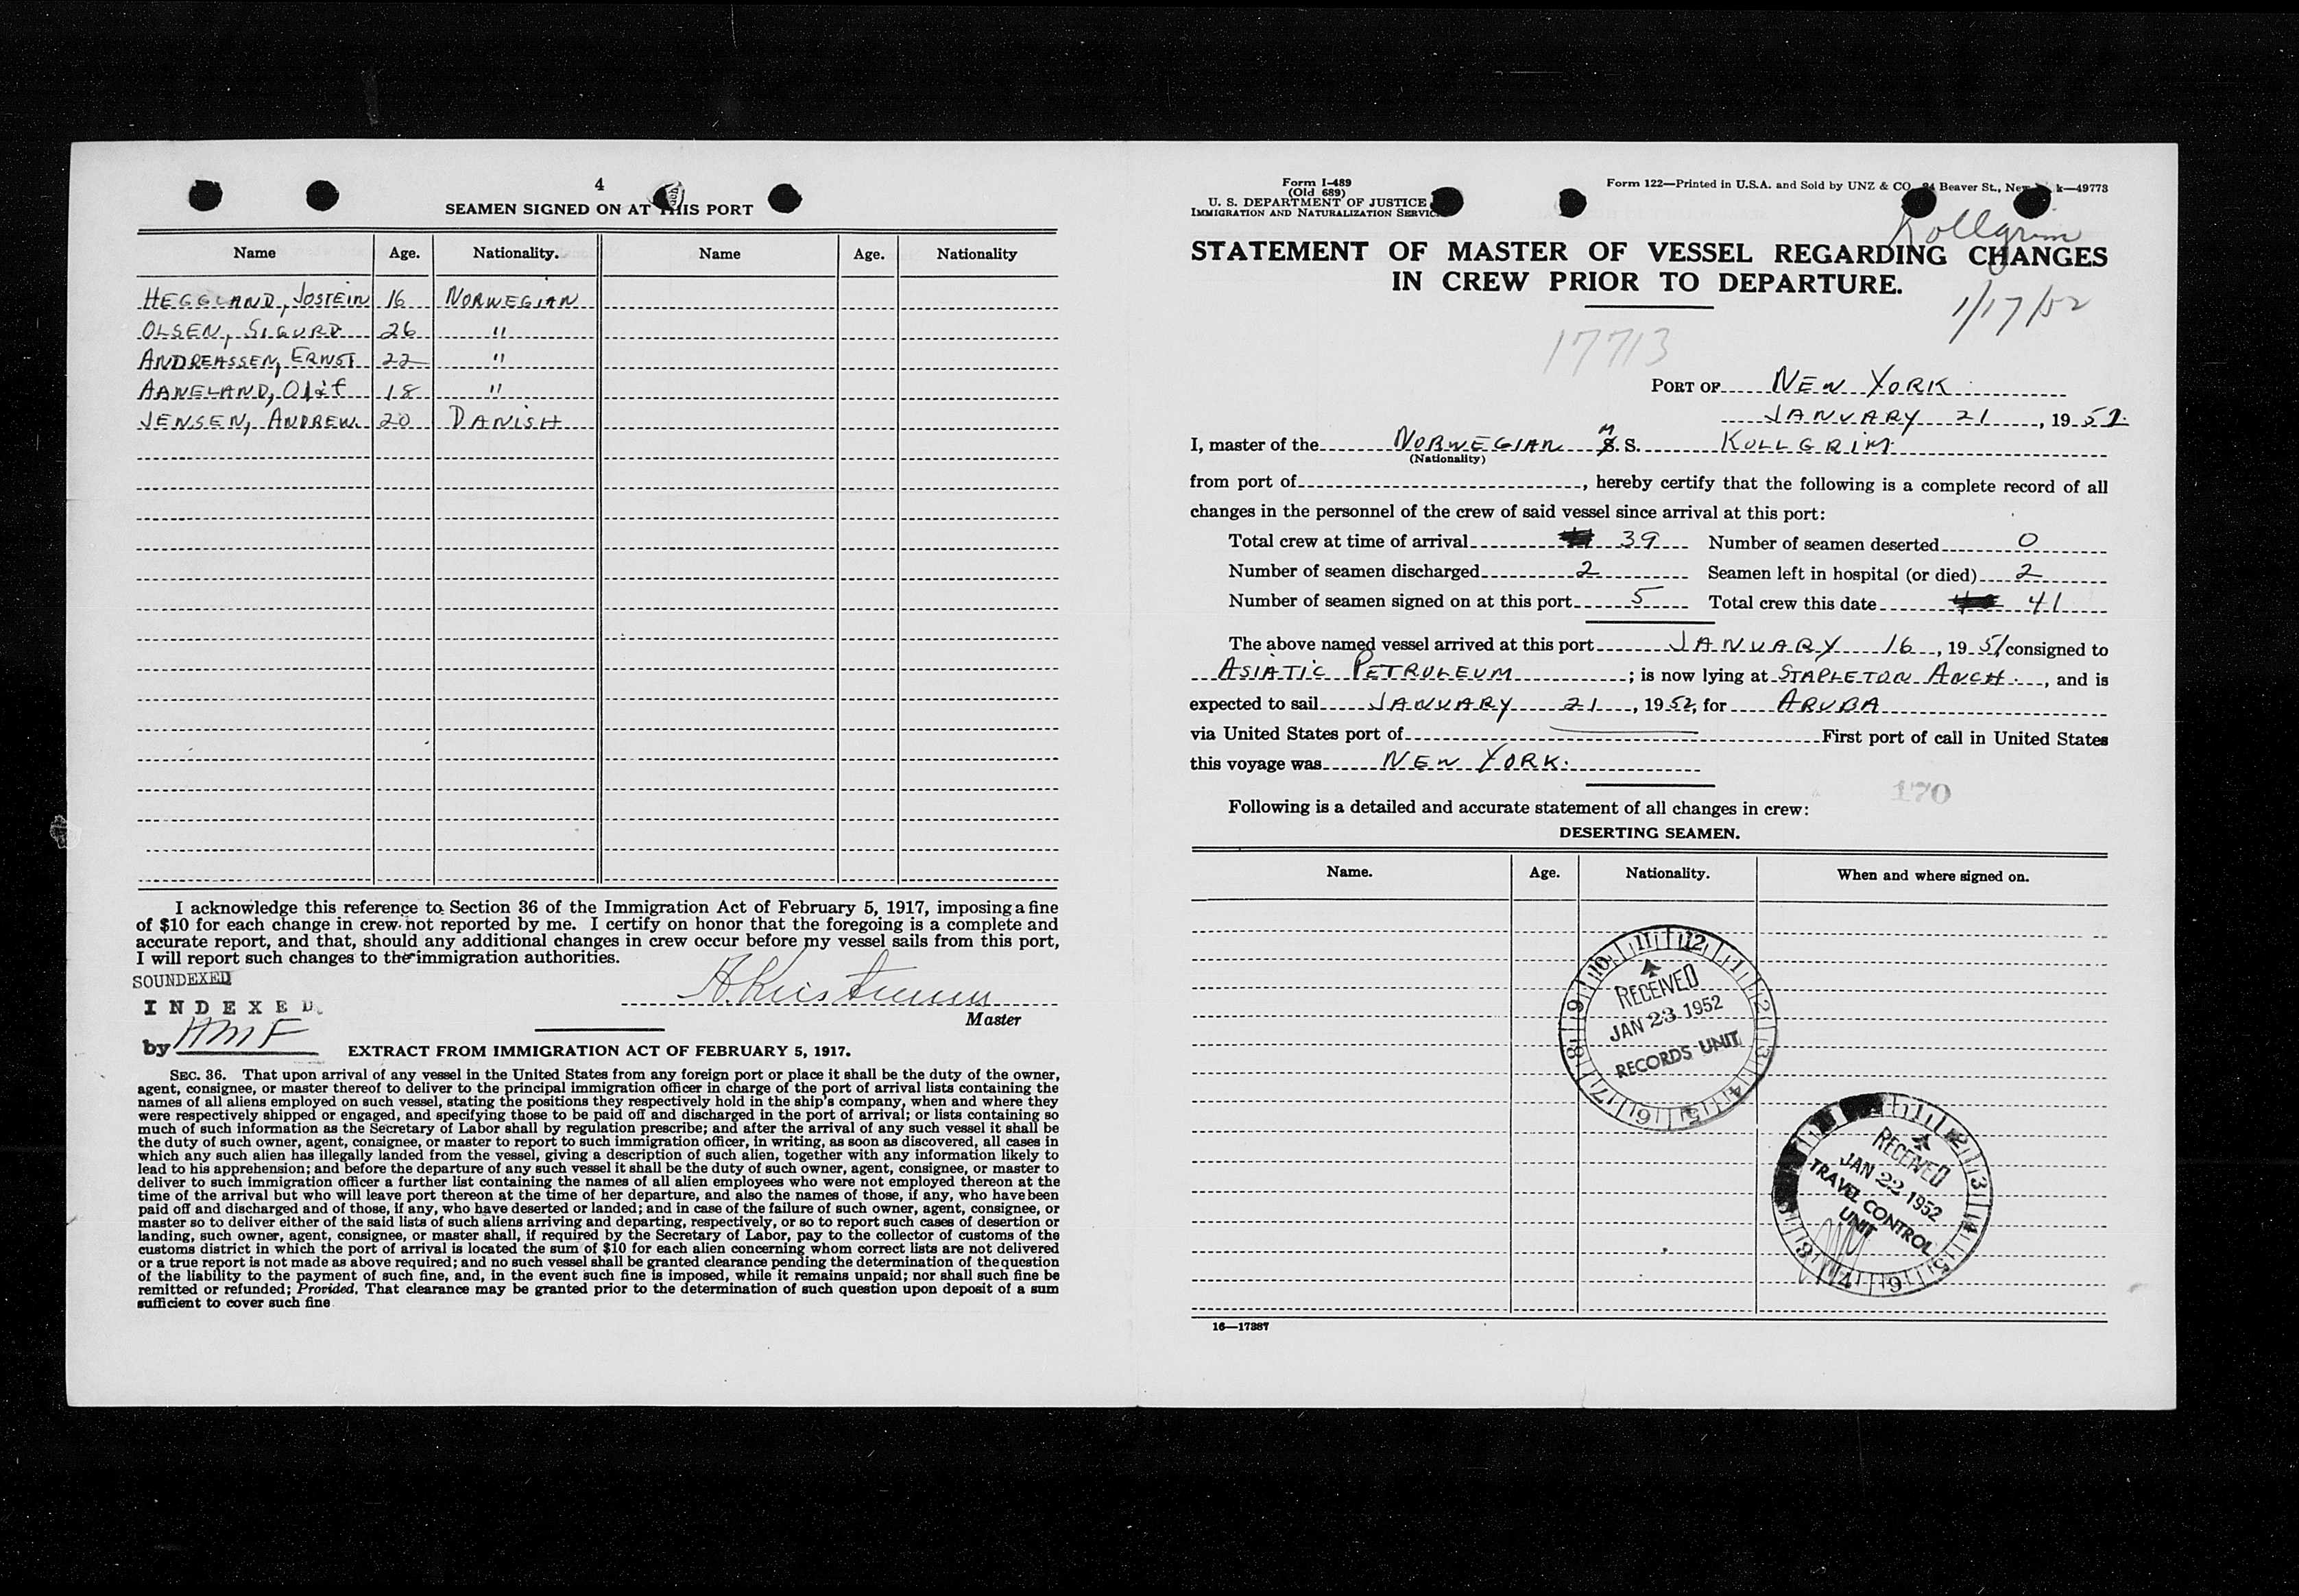 4
SEAMEN SIGNED ON AT THIS PORT
Name Age. Nationality. Name Age. Nationality
HEGGLAND, JOSTEIN 16 NORWEGIAN
OLSEN, SIGURD 26 "
ANDREASSEN, ERNST 22 "
AANELAND, Olaf 18 "
JENSEN, ANDREW. 20 DANISH
I acknowledge this reference to Section 36 of the Immigration Act of February 5, 1917, imposing a fine
of $10 for each change in crew not reported by me. I certify on honor that the foregoing is a complete and
accurate report, and that, should any additional changes in crew occur before my vessel sails from this port,
I will report such changes to the immigration authorities.
SOUNDEXED
INDEXED
by HMF
Master
EXTRACT FROM IMMIGRATION ACT OF FEBRUARY 5, 1917.
SEC. 36. That upon arrival of any vessel in the United States from any foreign port or place it shall be the duty of the owner,
agent, consignee, or master thereof to deliver to the principal immigration officer in charge of the port of arrival lists containing the
names of all aliens employed on such vessel, stating the positions they respectively hold in the ship's company, when and where they
were respectively shipped or engaged, and specifying those to be paid off and discharged in the port of arrival; or lists containing so
much of such information as the Secretary of Labor shall by regulation prescribe; and after the arrival of any such vessel it shall be
the duty of such owner, agent, consignee, or master to report to such immigration officer, in writing, as soon as discovered, all cases in
which any such alien has illegally landed from the vessel, giving a description of such alien, together with any information likely to
lead to his apprehension; and before the departure of any such vessel it shall be the duty of such owner, agent, consignee, or master to
deliver to such immigration officer a further list containing the names of all alien employees who were not employed thereon at the
time of the arrival but who will leave port thereon at the time of her departure, and also the names of those, if any, who have been
paid off and discharged and of those, if any, who have deserted or landed; and in case of the failure of such owner, agent, consignee, or
master so to deliver either of the said lists of such aliens arriving and departing, respectively, or so to report such cases of desertion or
landing, such owner, agent, consignee, or master shall, if required by the Secretary of Labor, pay to the collector of customs of the
customs district in which the port of arrival is located the sum of $10 for each alien concerning whom correct lists are not delivered
or a true report is not made as above required; and no such vessel shall be granted clearance pending the determination of the question
of the liability to the payment of such fine, and, in the event such fine is imposed, while it remains unpaid; nor shall such fine be
remitted or refunded; Provided, That clearance may be granted prior to the determination of such question upon deposit of a sum
sufficient to cover such fine
Form I-489
(Old 689)
U. S. DEPARTMENT OF JUSTICE
IMMIGRATION AND NATURALIZATION SERVICE
Form 122—Printed in U.S.A. and Sold by UNZ & CO. 24 Beaver St., New k—49773
Kollgrim
STATEMENT OF MASTER OF VESSEL REGARDING CHANGES
IN CREW PRIOR TO DEPARTURE.
1/17/52
17713
PORT OF NEW YORK
JANUARY 21, 1952.
I, master of the NORWEGIAN M.S. KOLLGRIM
(Nationality)
from port of , hereby certify that the following is a complete record of all
changes in the personnel of the crew of said vessel since arrival at this port:
Total crew at time of arrival 39 Number of seamen deserted 0
Number of seamen discharged 2 Seamen left in hospital (or died) 2
Number of seamen signed on at this port 5 Total crew this date 41
The above named vessel arrived at this port JANUARY 16, 1951, consigned to
ASIATIC PETROLEUM ; is now lying at STAPLETON ANCH. , and is
expected to sail JANUARY 21, 1952, for ARUBA
via United States port of First port of call in United States
this voyage was NEW YORK.
170
Following is a detailed and accurate statement of all changes in crew:
DESERTING SEAMEN.
Name. Age. Nationality. When and where signed on.
RECEIVED
JAN 23 1952
RECORDS UNIT
RECEIVED
JAN 22 1952
TRAVEL CONTROL
UNIT
16—17387